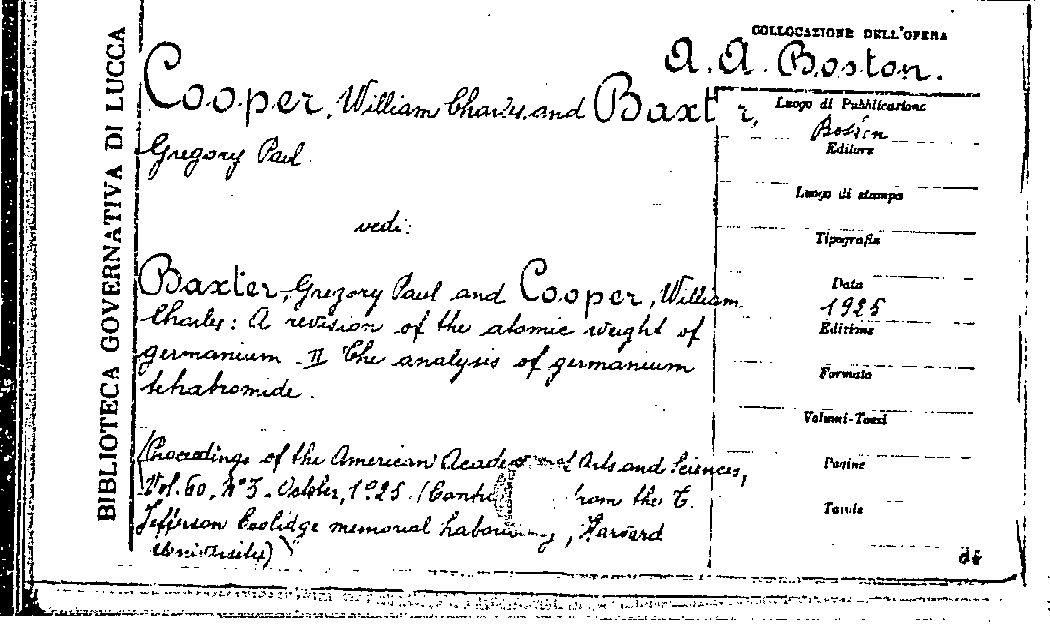 BIBLIOTECA GOVERNATIVA DI LUCCA
COLLOCAZIONE DELL'OPERA
A. A. Boston.
Cooper, William Charles and Baxter,
Gregory Paul
vedi:
Baxter, Gregory Paul and Cooper, William
Charles: A revision of the atomic weight of
germanium - II The analysis of germanium
tetrabromide.
(Proceedings of the American Academy of Arts and Sciences,
Vol. 60, n° 3. October, 1925. ( from the T.
Jefferson Coolidge memorial , Harvard
University)
Luogo di Pubblicazione
Boston
Editore
Luogo di stampa
Tipografia
Data
1925
Edizione
Formato
Volumi-Tomi
Pagine
Tavole